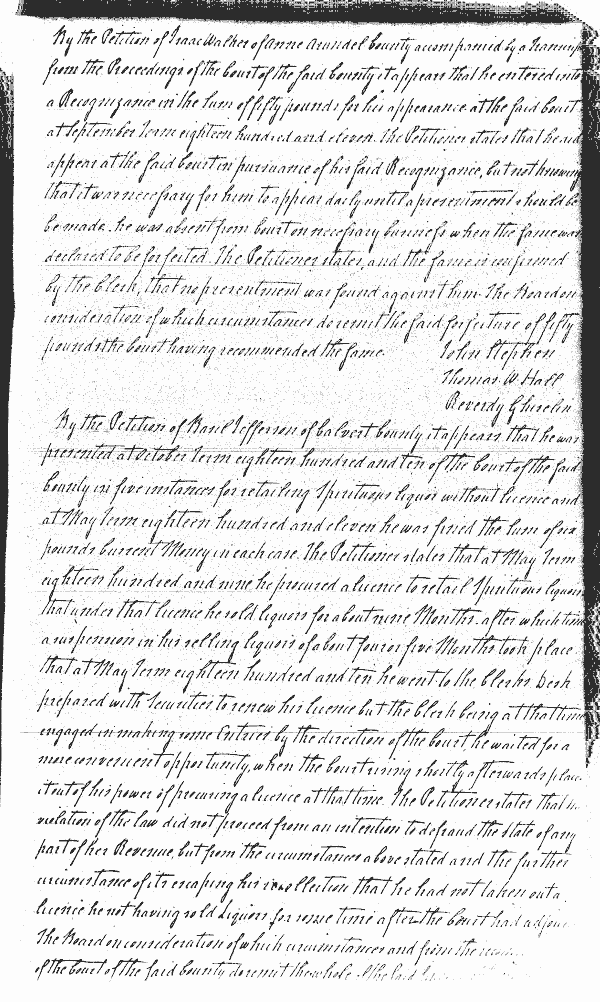 By the Petition of Isaac Walker of Anne Arundel County accompanied by a Transcript
from the Proceedings of the Court of the said County it appears that he entered into
a Recognizance in the Sum of fifty pounds for his appearance at the said Court
at September Term eighteen hundred and eleven. The Petitioner states that he did
appear at the said Court in pursuance of his said Recognizance, but not knowing
that it was necessary for him to appear daily until a presentment should be
be made. he was absent from Court on necessary business when the same was
declared to be forfeited. The Petitioner states, and the same is confirmed
by the Clerk, that no presentment was found against him. The Board on
consideration of which circumstances do remit the said forfeiture of fifty
pounds the Court having recommended the same.
John Stephen
Thomas W Hall
Beverdy Ghiselin
By the Petition of Basil Jefferson of Calvert County it appears that he was
presented at October Term eighteen hundred and ten of the Court of the said
County in five instances for retailing Spirituous liquor without licence and
at May Term eighteen hundred and eleven he was fined the Sum of six
pounds Current Money in each case. The Petitioner states that at May Term
eighteen hundred and nine he procured a licence to retail Spirituous liquors
that under that licence he sold liquors for about nine Months. after which time
a suspension in his selling liquors of about four or five Months took place.
that at May Term eighteen hundred and ten he went to the Clerks Desk
prepared with Securities to renew his licence but the Clerk being at that time
engaged in making some Entries by the direction of the Court he waited for a
more convenient opportunity, when the Court rising shortly afterwards place
it out of his power of procuring a licence at that time. The Petitioner states that
violation of the law did not proceed from an intention to defraud the State of any
part of her Revenue, but from the circumstances above stated and the further
circumstance of its escaping his recollection that he had not taken out a
licence he not having sold Liquors for some time after the Court had adjour
The Board on consideration of which circumstances and from the
of the Court of the said County do remit the whole of the said